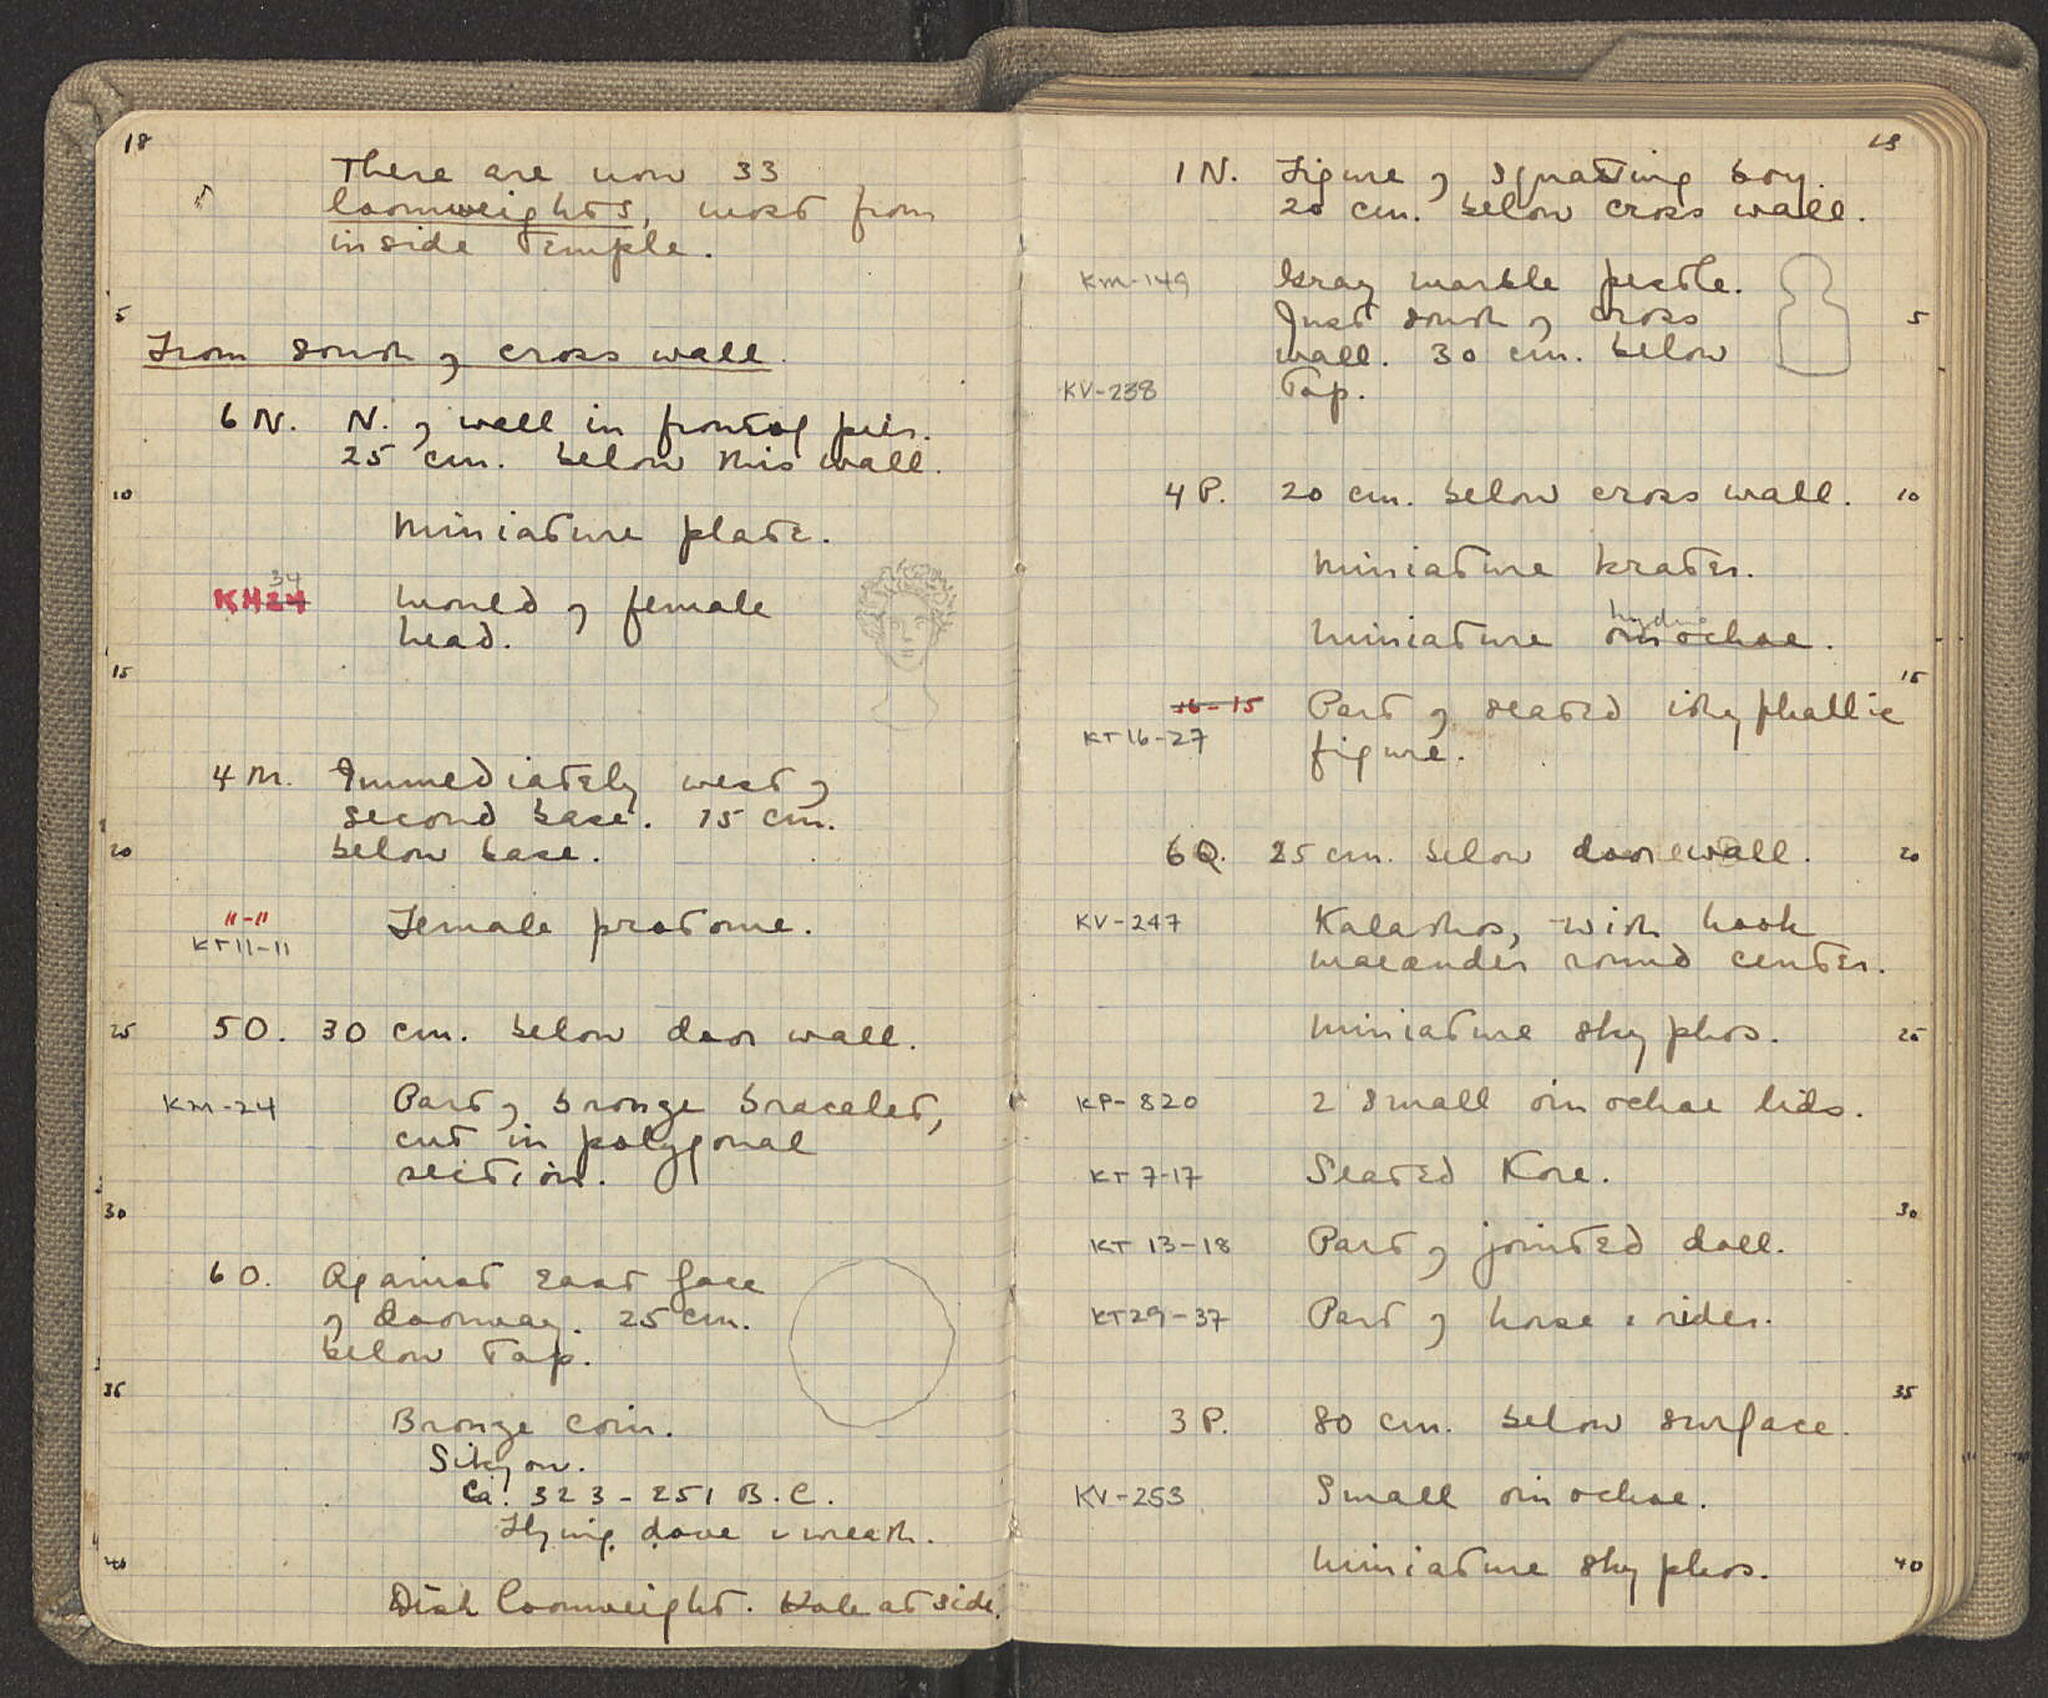 18
There are now 33
loomweights, most from
inside Temple.
5
From south of cross wall.
6 N. N. of wall in front of pier.
25 cm. below this wall.
10
Miniature plate.
34
KH24 Mould of female
head.
15
4 M. Immediately west of
second base. 15 cm.
20 below base.
11-11 Female protome.
KT11-11
25 5 O. 30 cm. below door wall.
KM-24 Part of bronze bracelet,
cut in polygonal
section.
30
6 O. Against east face
of doorway. 25 cm.
below top.
35
Bronze coin.
Sikyon.
Ca. 323-251 B.C.
Flying dove & wreath.
40
Disk loomweight. Hole at side.
1 N. Figure of squatting boy.
20 cm. below cross wall.
KM-149 Gray marble pestle.
Just south of cross 5
wall. 30 cm. below
KV-238 top.
4 P. 20 cm. below cross wall. 10
Miniature krater.
hydria
Miniature oinochoe.
15
16-15 Part of seated ithyphallic
KT16-27 figure.
6 Q. 25 cm. below door wall. 20
KV-247 Kalathos, with hook
maeander round center.
Miniature skyphos. 25
KP-820 2 small oinochoe lids.
KT 7-17 Seated Kore.
30
KT 13-18 Part of jointed doll.
KT29-37 Part of horse & rider.
35
3 P. 80 cm. below surface.
KV-253 Small oinochoe.
Miniature skyphos. 40